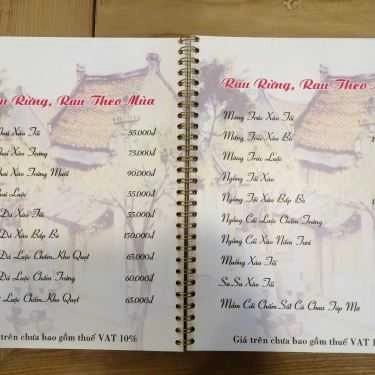 Rừng, Rau Theo Mùa
Xào Tỏi 55.000đ
Xào Trứng 75.000đ
Xào Trứng Muối 90.000đ
Luộc 55.000đ
Đá Xào Tỏi 55.000đ
Đá Xào Bắp Bò 150.000đ
Đá Luộc Chấm Kho Quẹt 65.000đ
Đá Luộc Chấm Trứng 60.000đ
Luộc Chấm Kho Quẹt 65.000đ
trên chưa bao gồm thuế VAT 10%
Rau Rừng, Rau Theo
Măng Trúc Xào Tỏi
Măng Trúc Xào Bò
Măng Trúc Luộc
Ngồng Tỏi Xào
Ngồng Tỏi Xào Bắp Bò
Ngồng Cải Luộc Chấm Trứng
Ngồng Cải Xào Nấm Tươi
Muống Xào Tỏi
Su Su Xào Tỏi
Mầm Cải Chấm Sốt Cà Chua Tóp Mỡ
Giá trên chưa bao gồm thuế VAT 10%